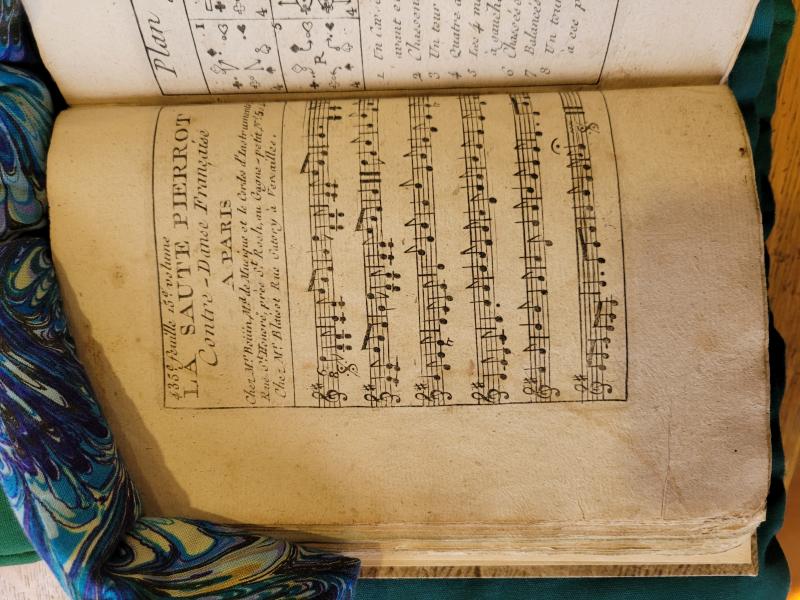 435e feuille 15e volume
LA SAUTE PIERROT
Contre-Danse Française
A PARIS
Chez Mr Boüin, Md de Musique et de Cordes d'Instruments
Rue St Honoré, près St Roch, au Gagne-petit,
Chez Mr Blaisot Rue Satory à Versailles.
Plan
1
4
3
R
4
1 Un
avant e
2 Chassé
3 Un tour
4 Quatre
5 Les 4 m
à gauche
6 Chassés
7 Balancés
8 Un tour
à ces p